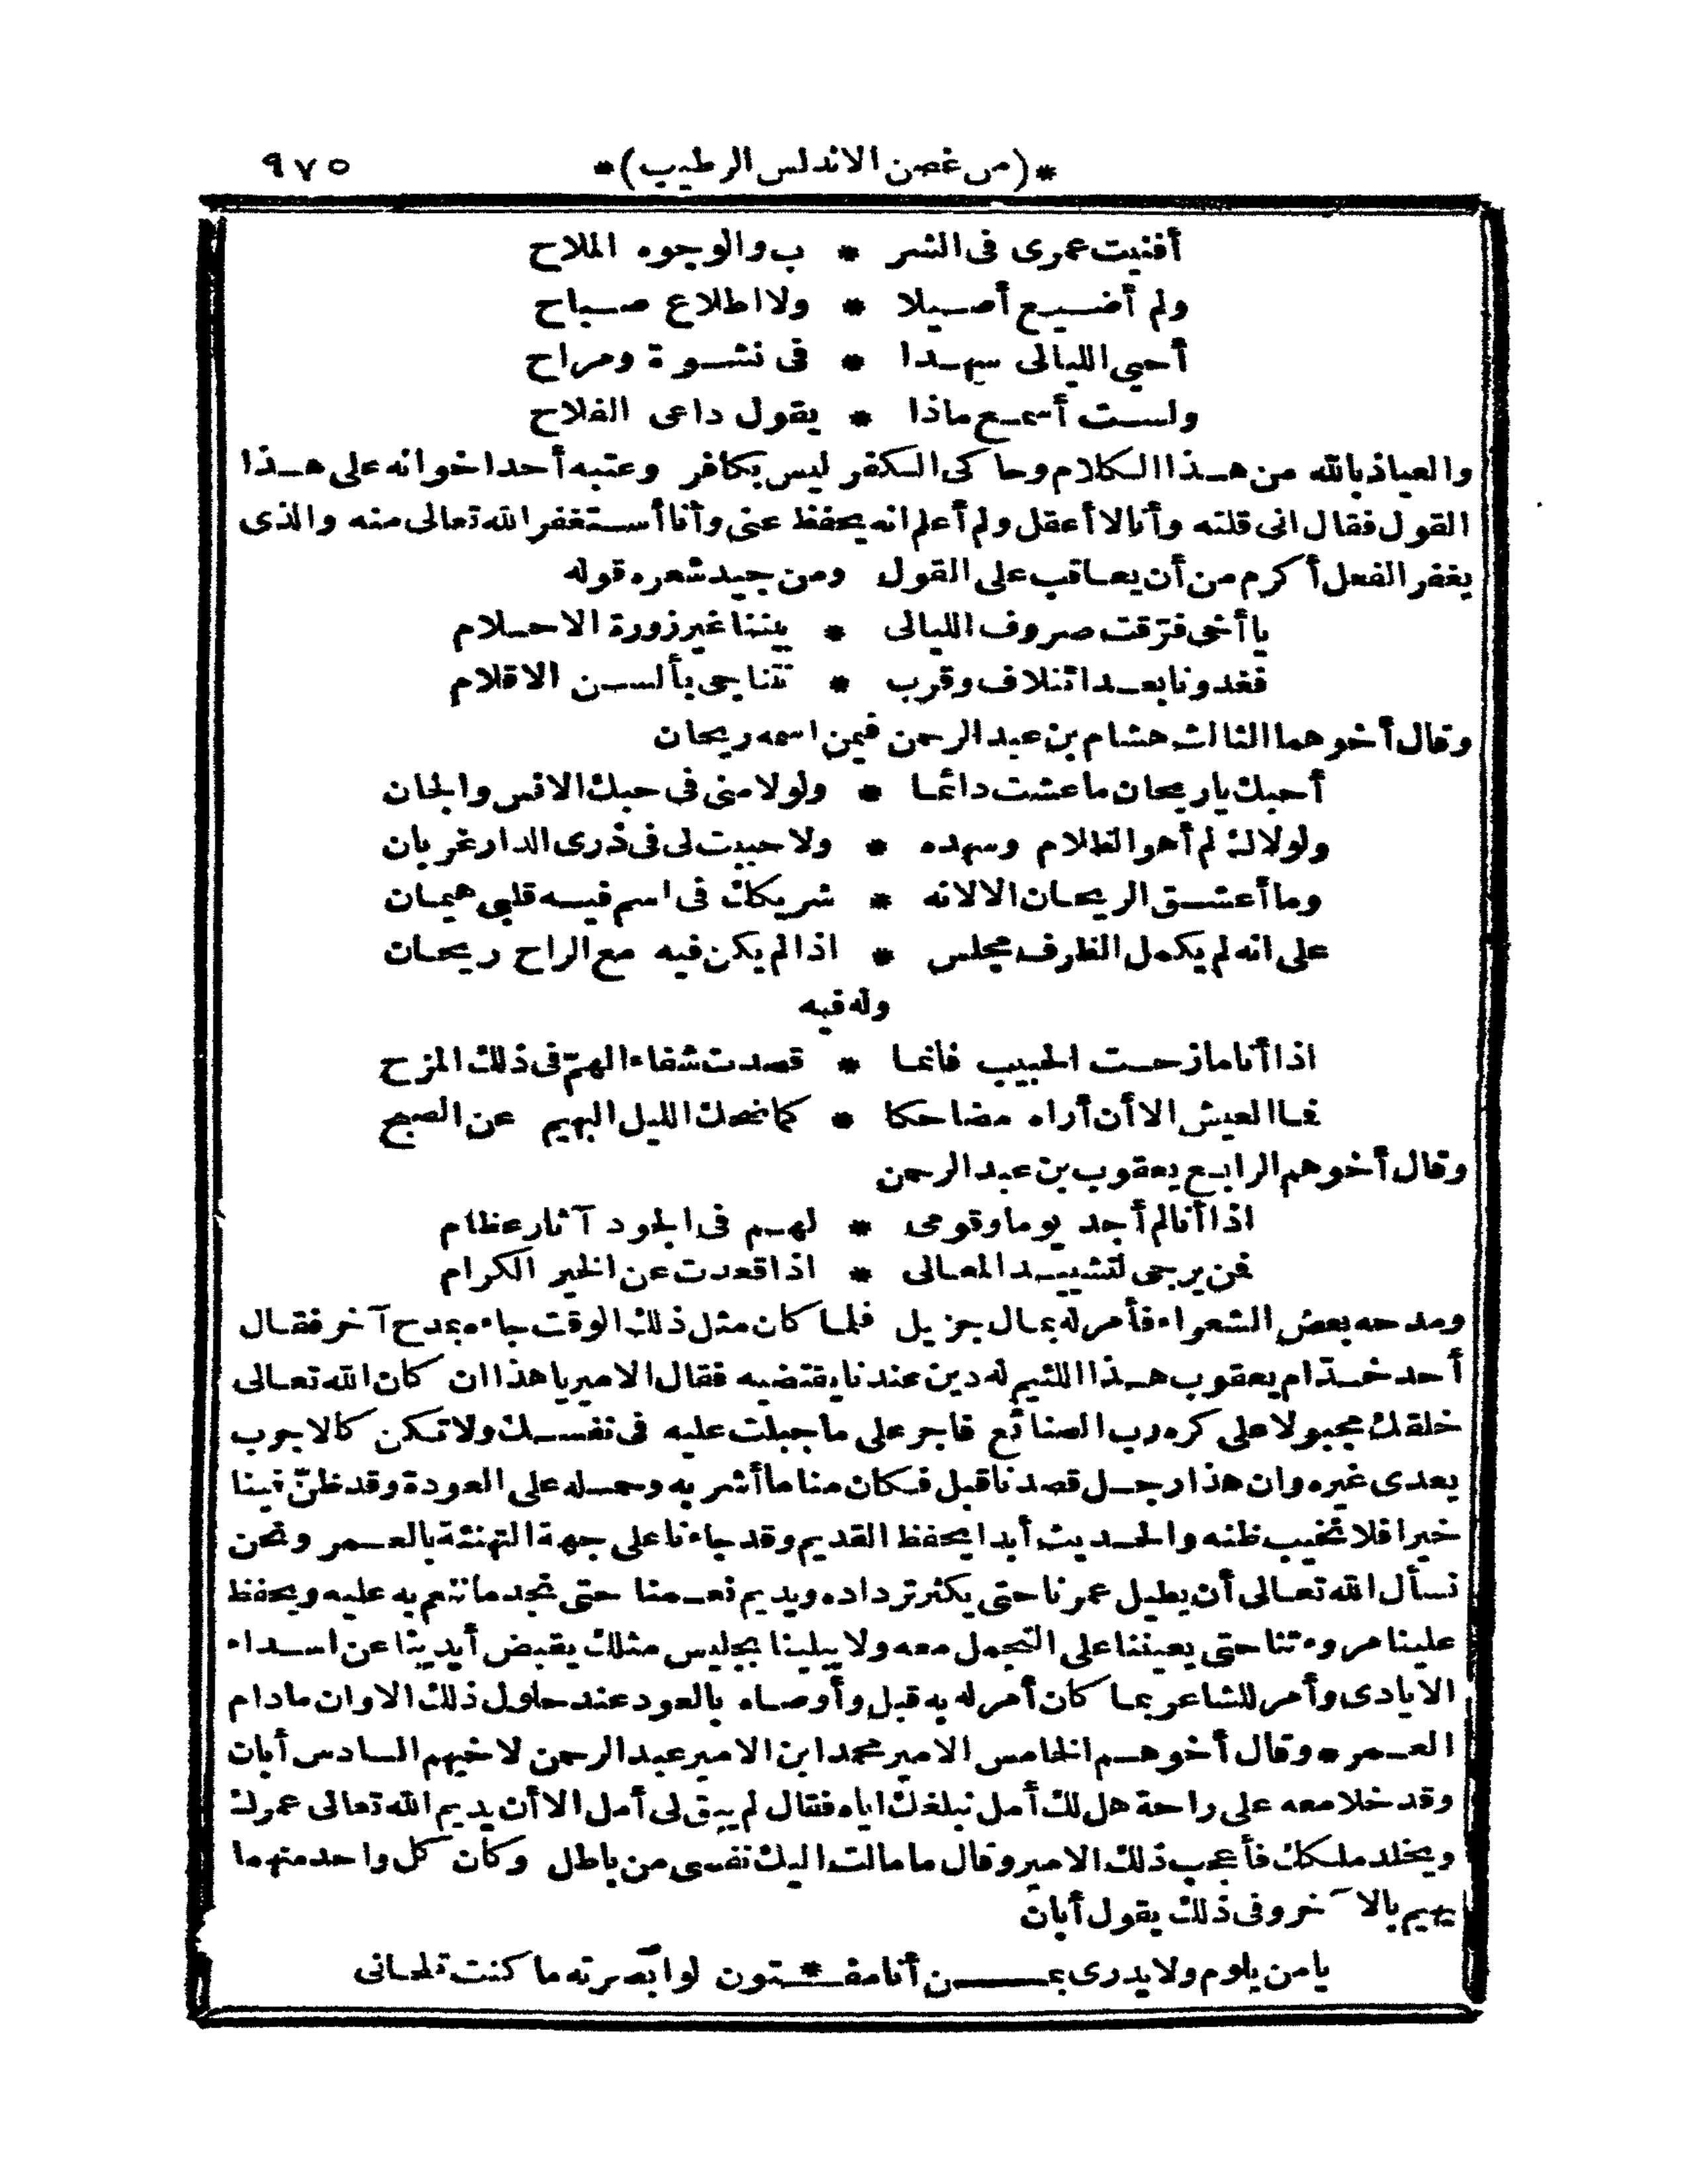 *(من غصن الاندلس الرطيب)* ٩٧٥
أفنيت عمرى فى الشر * ب والوجوه الملاح
ولم أضيع أصيلا * ولا اطلاع صباح
أحيى الليالى سهدا * فى نشوة ومراح
ولست أسمع ماذا * يقول داعى الفلاح
والعياذ بالله من هذا الكلام وحاكى الكفر ليس بكافر وعتبه أحد اخوانه على هذا
القول فقال انى قلته وأنا لا أعقل ولم أعلم انه يحفظ عنى وأنا أستغفر الله تعالى منه والذى
يغفر الفعل أكرم من أن يعاقب على القول ومن جيد شعره قوله
يا أخى فرّقت صروف الليالى * بيننا غير زورة الاحلام
فغدونا بعد ائتلاف وقرب * نتناجى بألسن الاقلام
وقال أخوهما الثالث هشام بن عبد الرحمن فيمن اسمه ريحان
أحبك ياريحان ما عشت دائما * ولو لامنى فى حبك الانس والجان
ولولاك لم أهو الظلام وسهده * ولا حببت لى فى ذرى الدار غربان
وما أعشق الريحان الا لانه * شريكك فى اسم فيه قلبى هيمان
على انه لم يكمل الظرف مجلس * اذا لم يكن فيه مع الراح ريحان
وله فيه
اذا أنا مازحت الحبيب فانما * قصدت شفاء الهمّ فى ذلك المزح
فما العيش الا أن أراه مضاحكا * كما ضحك الليل البهيم عن الصبح
وقال أخوهم الرابع يعقوب بن عبد الرحمن
اذا أنا لم أجد يوما وقومى * لهم فى الجود آثار عظام
فمن يرجى لتشييد المعالى * اذا قعدت عن الخير الكرام
ومدحه بعض الشعراء فأمر له بمال جزيل فلما كان مثل ذلك الوقت جاءه بمدح آخر فقال
أحد خدّام يعقوب هذا اللئيم له دين عندنا يقتضيه فقال الامير يا هذا ان كان الله تعالى
خلقك مجبولا على كره رب الصنائع فاجر على ما جبلت عليه فى نفسك ولا تكن كالاجرب
يعدى غيره وان هذا رجل قصدنا قبل فكان منا ما أشر به وحمله على العودة وقد ظنّ فينا
خيرا فلا تخيب ظنه والحديث أبدا يحفظ القديم وقد جاءنا على جهة التهنئة بالعمر ونحن
نسأل الله تعالى أن يطيل عمرنا حتى يكثر ترداده ويديم نعمنا حتى نجد ما ننعم به عليه ويحفظ
علينا مروءتنا حتى يعيننا على التجمل معه ولا يبلينا بجليس مثلك يقبض أيدينا عن اسداء
الايادى وأمر للشاعر بما كان أمر له به قبل وأوصاه بالعود عند حلول ذلك الاوان مادام
العمر * وقال أخوهم الخامس الامير محمد ابن الامير عبد الرحمن لاخيهم السادس أبان
وقد خلا معه على راحة هل لك أمل نبلغك اياه فقال لم يبق لى أمل الا أن يديم الله تعالى عمرك
ويخلد ملكك فأعجب ذلك الامير وقال ما مالت اليك نفسى من باطل وكان كل واحد منهما
يهيم بالآخر وفى ذلك يقول أبان
يا من يلوم ولا يدرى بمن أنا مفتون * لو أبصرته ما كنت تلحانى